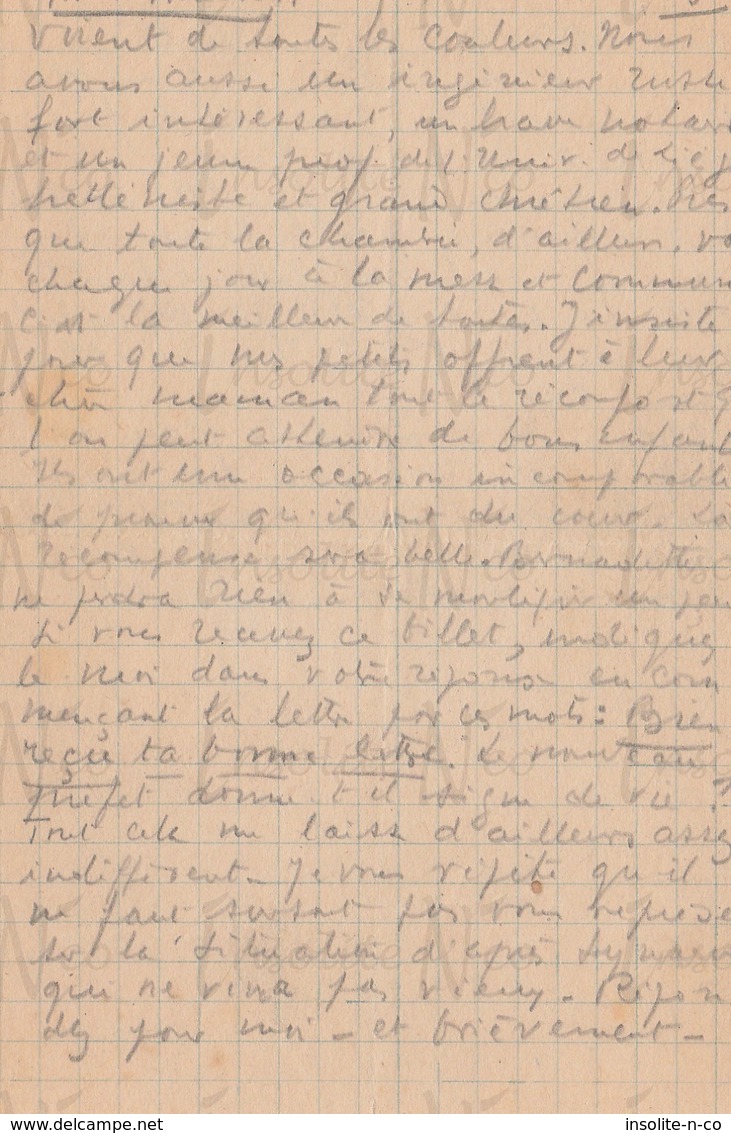 voient de toutes les couleurs. Nous
avons aussi un ingénieur russe
fort intéressant, un brave notaire
et un jeune prof. de l'Univ. de Liég
helléniste et grand chrétien. Pres
que toute la chambrée, d'ailleurs, va
chaque jour à la messe et communi
C'est la meilleure de toutes. J'insiste
pour que mes petits offrent à leur
chère maman tout le réconfort q
l'on peut attendre de bons enfant
Ils ont une occasion incomparable
de prouver qu'ils ont du cœur. La
récompense sera belle. Bernadette
ne perdra rien à se mortifier un peu
Si vous recevez ce billet, indiquez
le moi dans votre réponse en com
mençant la lettre par ces mots: Bien
reçu ta bonne lettre. Le nouveau
préfet donne t il signe de vie ?
Tout cela me laisse d'ailleurs assez
indifférent - Je vous répète qu'il
ne faut surtout pas vous repose
sur la situation d'après
qui ne vivra pas vieux - Répon
dez pour moi - et brièvement -
insolite-n-co
www.delcampe.net
insolite-n-co